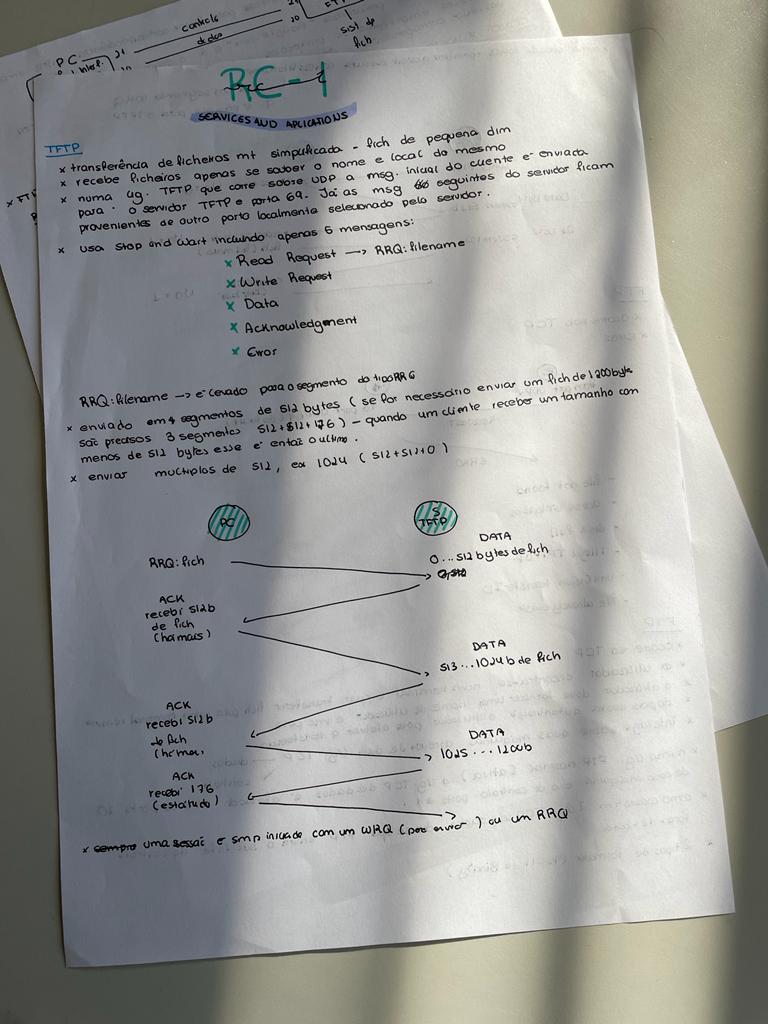 PC
controlo
dados
21
20
sist de
fich
RC-1
SERVICES AND APLICATIONS
TFTP
x transferência de ficheiros mt simplificada - fich de pequena dim
x recebe ficheiros apenas se souber o nome e local do mesmo
x numa lig. TFTP que corre sobre UDP a msg. inicial do cliente é enviada
para o servidor TFTP e porta 69. Já as msg seguintes do servidor ficam
provenientes de outro porto localmente selecionado pelo servidor.
x usa Stop and Wait incluindo apenas 5 mensagens:
x Read Request → RRQ: filename
x Write Request
x Data
x Acknowledgment
x Error
RRQ: filename → é levado para o segmento do tipo RRQ
x enviado em segmentos de 512 bytes (se for necessário enviar um fich de 1200 byte
são precisos 3 segmentos 512+512+176) - quando um cliente receber um tamanho com
menos de 512 bytes esse é então o ultimo.
x enviar multiplos de 512, ex 1024 (512+512+0)
PC
S
TFTP
DATA
RRQ: fich
0...512 bytes de fich
ACK
recebi 512b
de fich
(há mais)
DATA
513...1024 b de fich
ACK
recebi 512b
de fich
(há mais
DATA
1025...1200b
ACK
recebi 176
(está tudo)
x sempre uma sessão é smp iniciada com um WRQ (para enviar) ou um RRQ